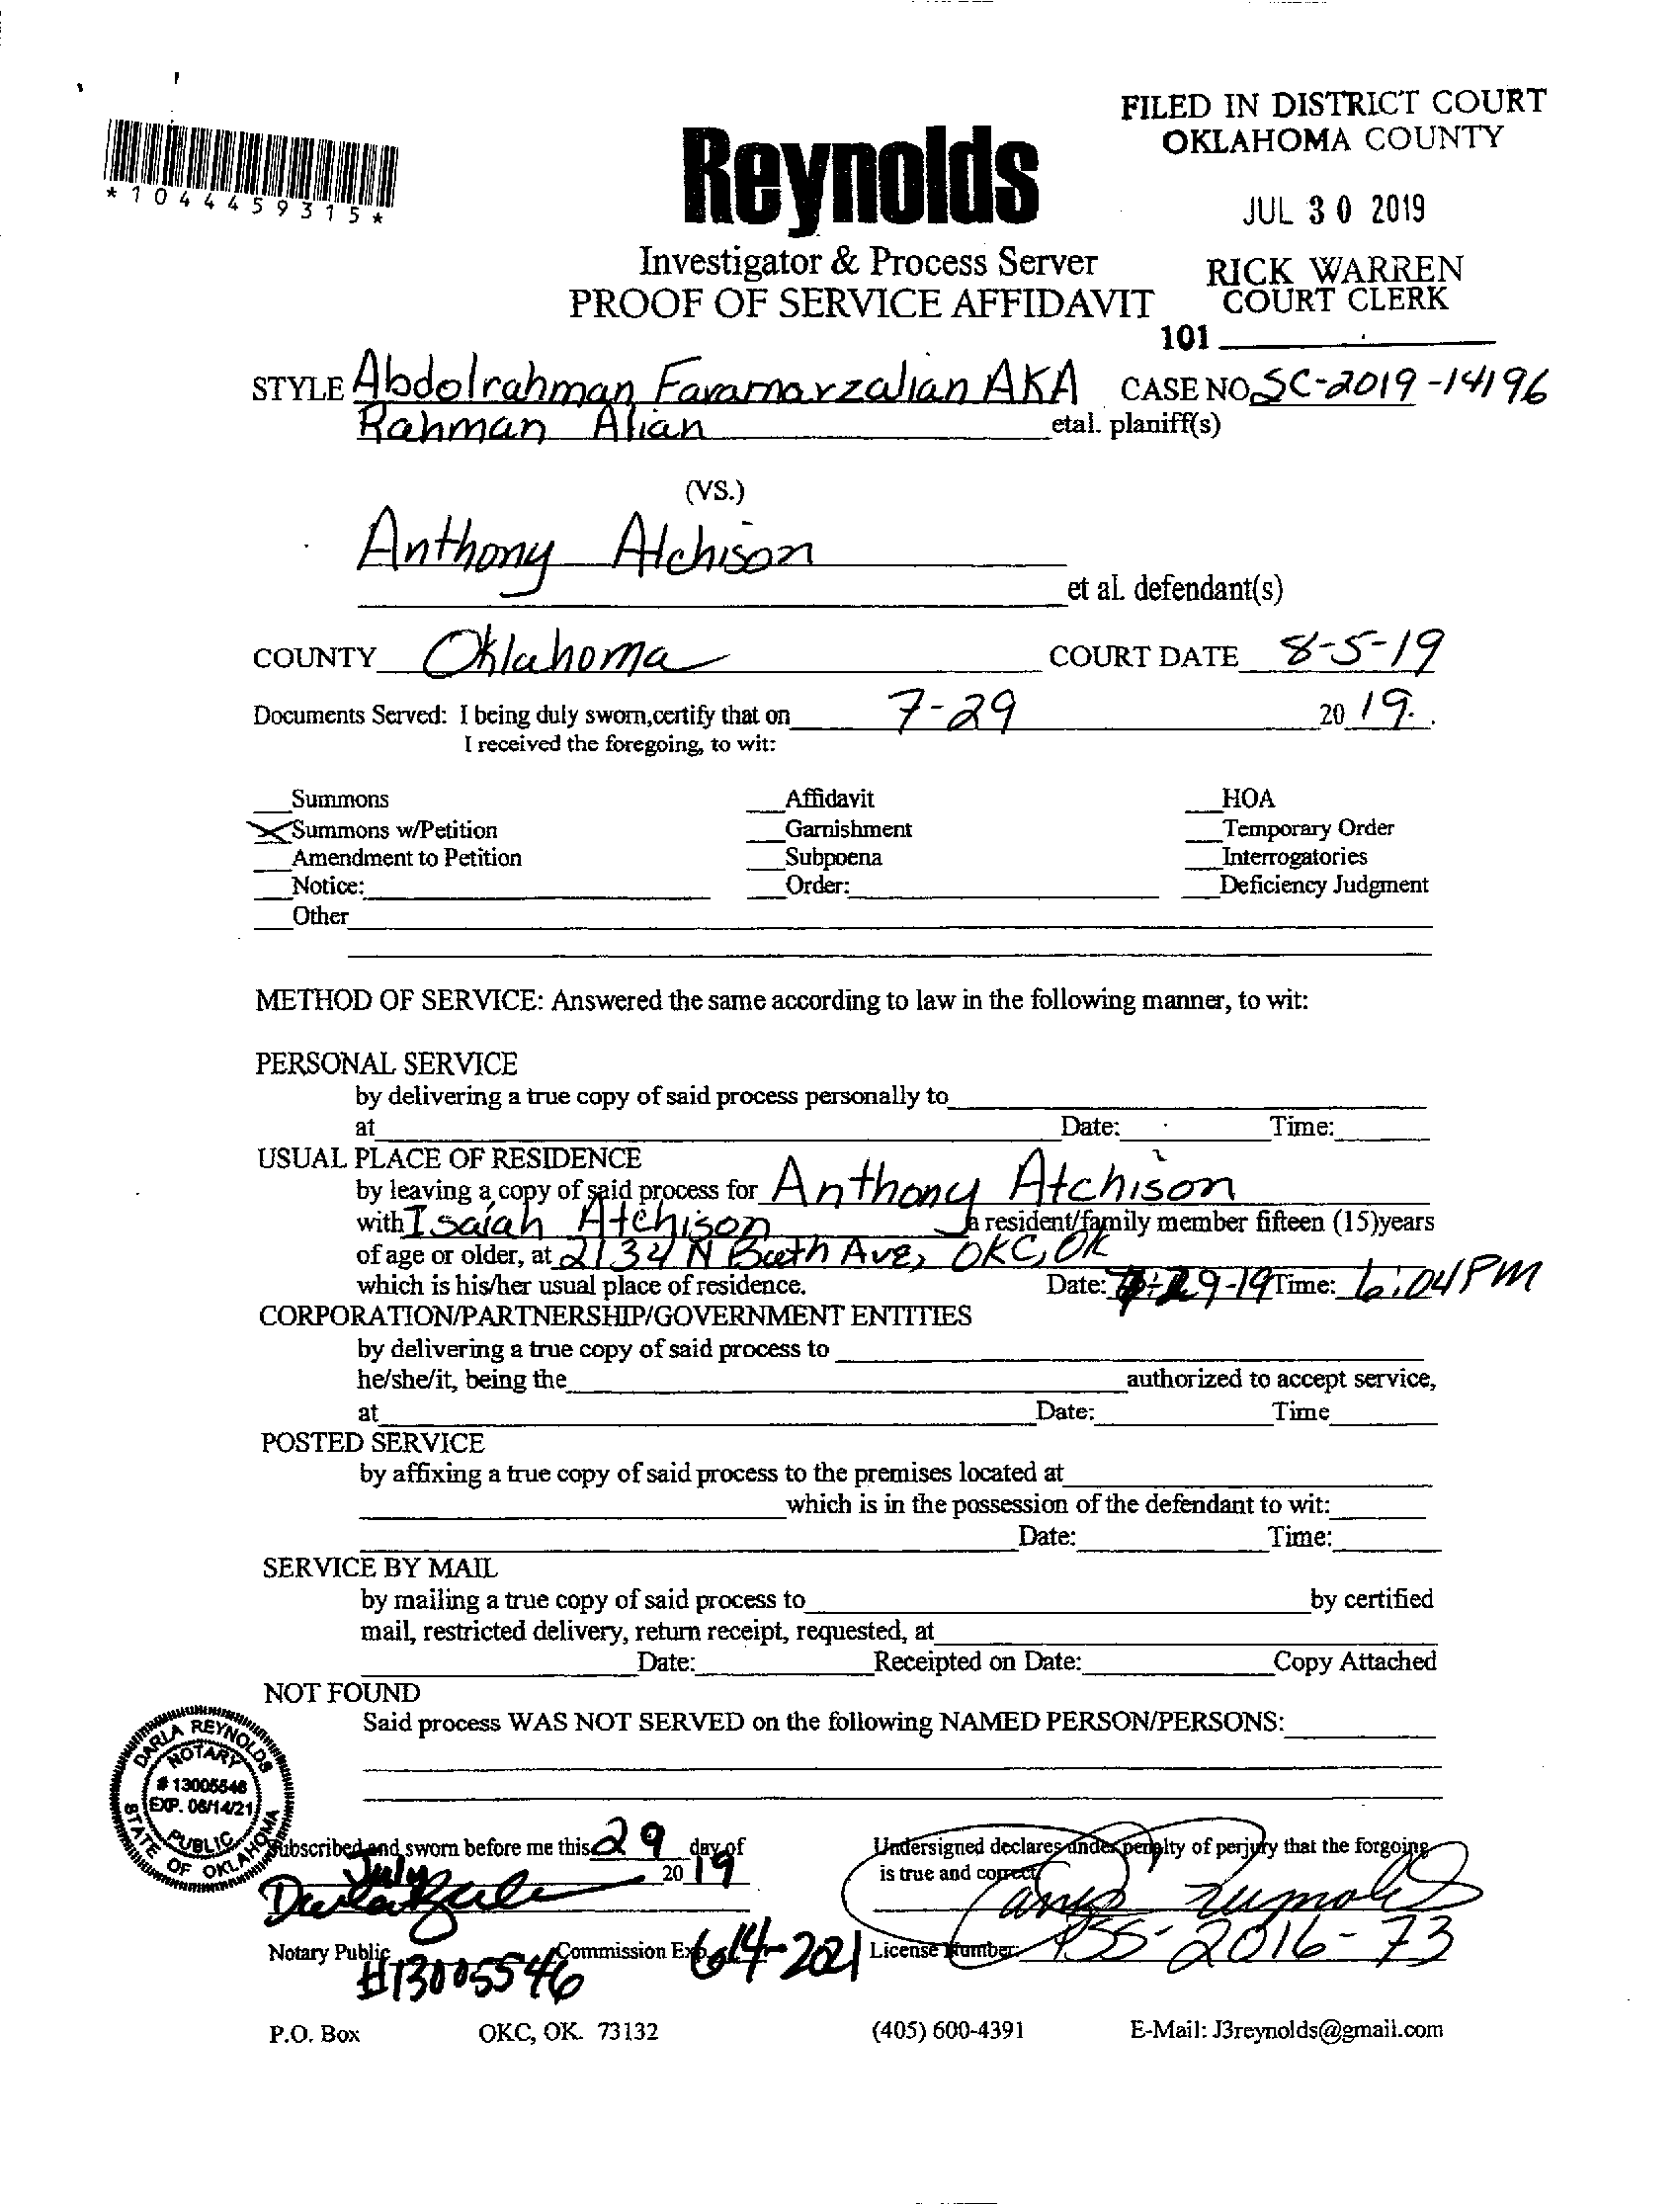 FILED IN DISTRICT COURT
OKLAHOMA COUNTY
JUL 30 2019
RICK WARREN
COURT CLERK
101
*1044459315*
Reynolds
Investigator & Process Server
PROOF OF SERVICE AFFIDAVIT
STYLE Abdolrahman Faramarzalian AKA CASE NO. SC-2019-14196
Rahman Alian etal. planiff(s)
(VS.)
Anthony Atchison
et al. defendant(s)
COUNTY Oklahoma COURT DATE 8-5-19
Documents Served: I being duly sworn,certify that on 7-29 2019.
I received the foregoing, to wit:
Summons Affidavit HOA
X Summons w/Petition Garnishment Temporary Order
Amendment to Petition Subpoena Interrogatories
Notice: Order: Deficiency Judgment
Other
METHOD OF SERVICE: Answered the same according to law in the following manner, to wit:
PERSONAL SERVICE
by delivering a true copy of said process personally to
at Date: Time:
USUAL PLACE OF RESIDENCE
by leaving a copy of said process for Anthony Atchison
with Isaiah Atchison a resident/family member fifteen (15)years
of age or older, at 2134 N Ave, OKC, OK
which is his/her usual place of residence. Date: 7-29-19 Time: 6:04 PM
CORPORATION/PARTNERSHIP/GOVERNMENT ENTITIES
by delivering a true copy of said process to
he/she/it, being the authorized to accept service,
at Date: Time
POSTED SERVICE
by affixing a true copy of said process to the premises located at
which is in the possession of the defendant to wit:
Date: Time:
SERVICE BY MAIL
by mailing a true copy of said process to by certified
mail, restricted delivery, return receipt, requested, at
Date: Receipted on Date: Copy Attached
NOT FOUND
Said process WAS NOT SERVED on the following NAMED PERSON/PERSONS:
DARLA REYNOLDS
NOTARY
# 13005546
EXP. 06/14/21
PUBLIC
STATE OF OKLAHOMA
Subscribed and sworn before me this 29 day of
July 2019
Undersigned declares under penalty of perjury that the forgoing
is true and correct
Notary Public Commission Exp. 6-14-2021
#13005546
License Number: PSS-2016-73
P.O. Box OKC, OK. 73132 (405) 600-4391 E-Mail: J3reynolds@gmail.com